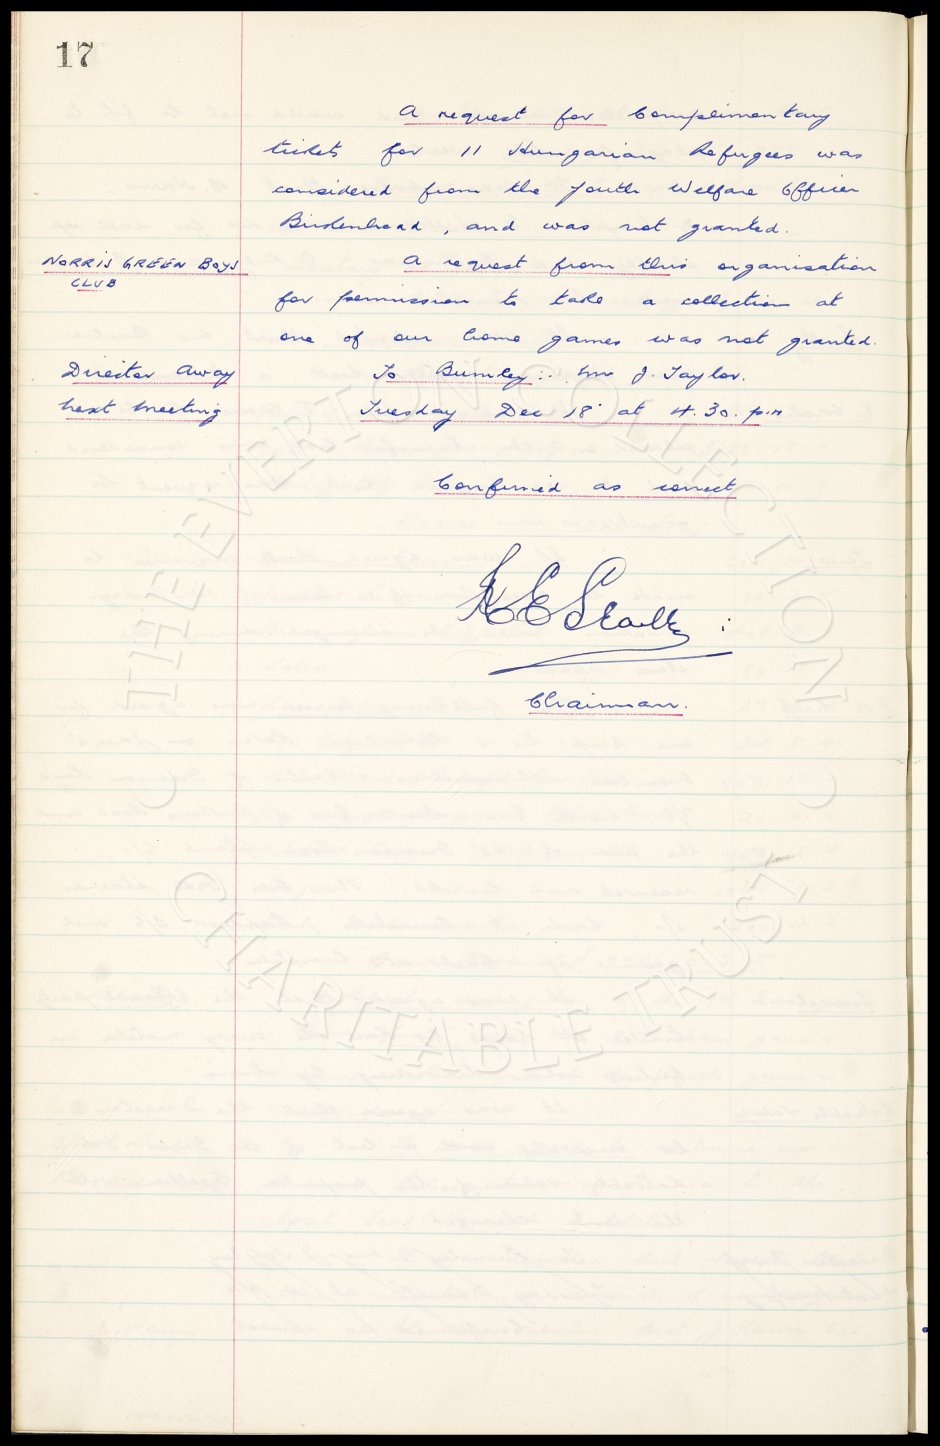 17
A request for Complimentary
tickets for 11 Hungarian Refugees was
considered from the Youth Welfare Officer
Birkenhead, and was not granted.
NORRIS GREEN BOYS CLUB
A request from this organisation
for permission to take a collection at
one of our home games was not granted.
Director Away
To Burnley:- Mr J. Taylor.
Next Meeting
Tuesday Dec 18 at 4.30. p.m
Confirmed as correct
Chairman.
© THE EVERTON COLLECTION
CHARITABLE TRUST